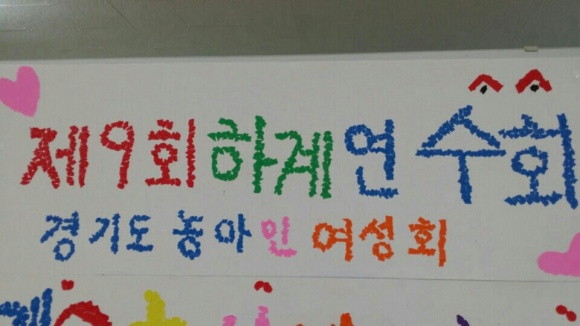 제9회하계연 수회
경기도농아인 여성회